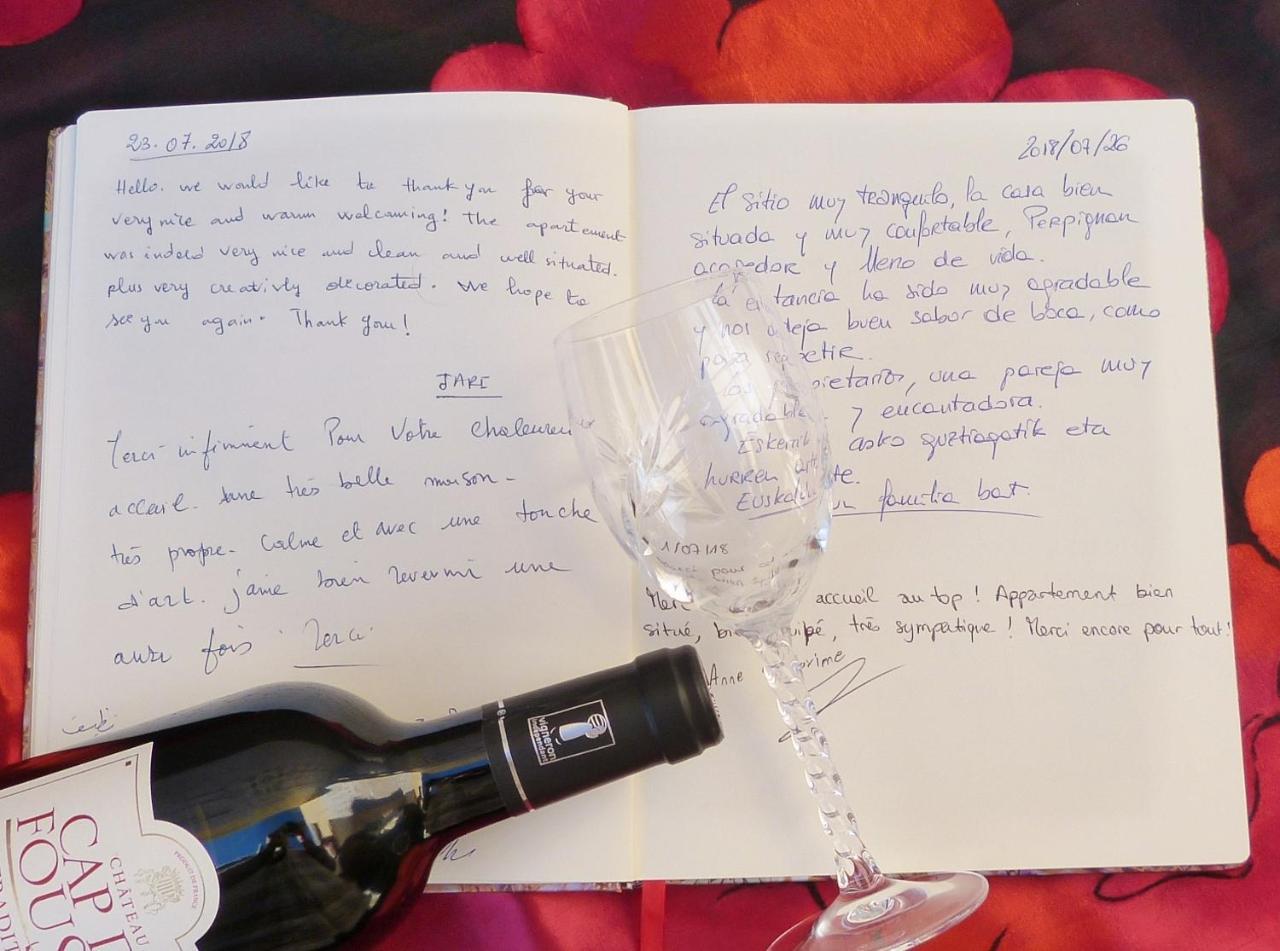 23.07.2018
Hello. we would like to thank you for your
very nice and warm welcoming! The apartement
was indeed very nice and clean and well situated.
plus very creativly décorated. We hope to
see you again. Thank you!
JARI
Merci infiniment Pour Votre Chaleureux
accueil. une très belle maison-
très propre. Calme et avec une touche
d'art. j'aime bien revenir une
autre fois. Merci
2018/07/26
El sitio muy tranquilo, la casa bien
situada y muy confortable, Perpignan
acogedor y lleno de vida.
la estancia ha sido muy agradable
y nos deja buen sabor de boca, como
para repetir.
los propietarios, una pareja muy
agradable y encantadora.
Eskerrik asko guztiagatik eta
hurren arte.
familia bat.
1/07/18
Merci accueil au top! Appartement bien
situé, bien équipé, très sympatique! Merci encore pour tout!
Anne
vigneron
indépendant
CHÂTEAU
CAP
FOUS